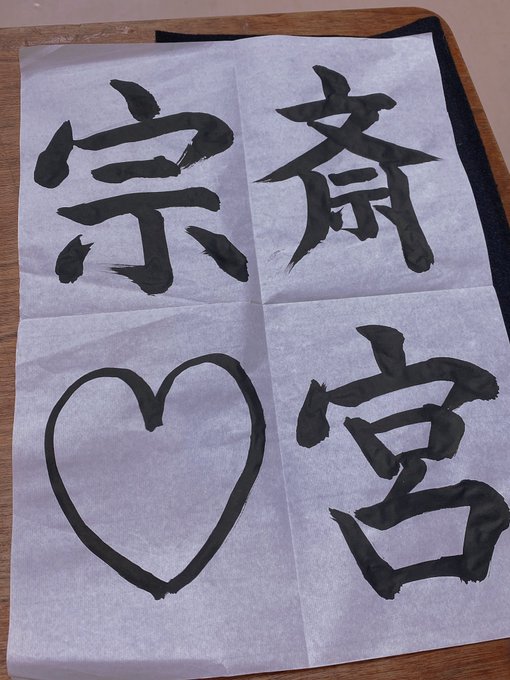 斎宮
宗♡